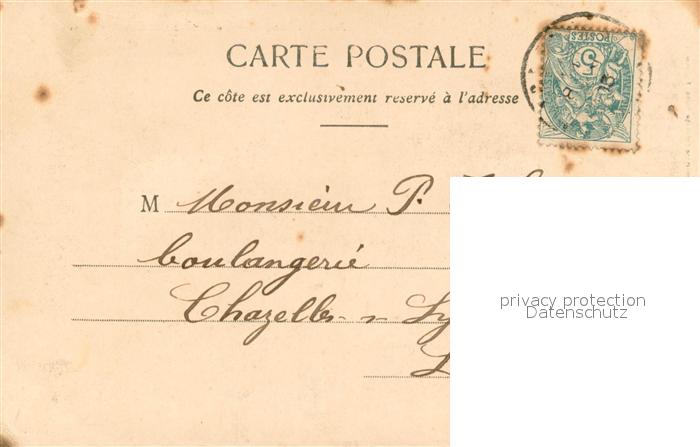 CARTE POSTALE
POSTES
5
Ce côte est exclusivement reservé à l'adresse
M Monsieur P.
boulangerie
Chazelles s Ly
privacy protection
Datenschutz